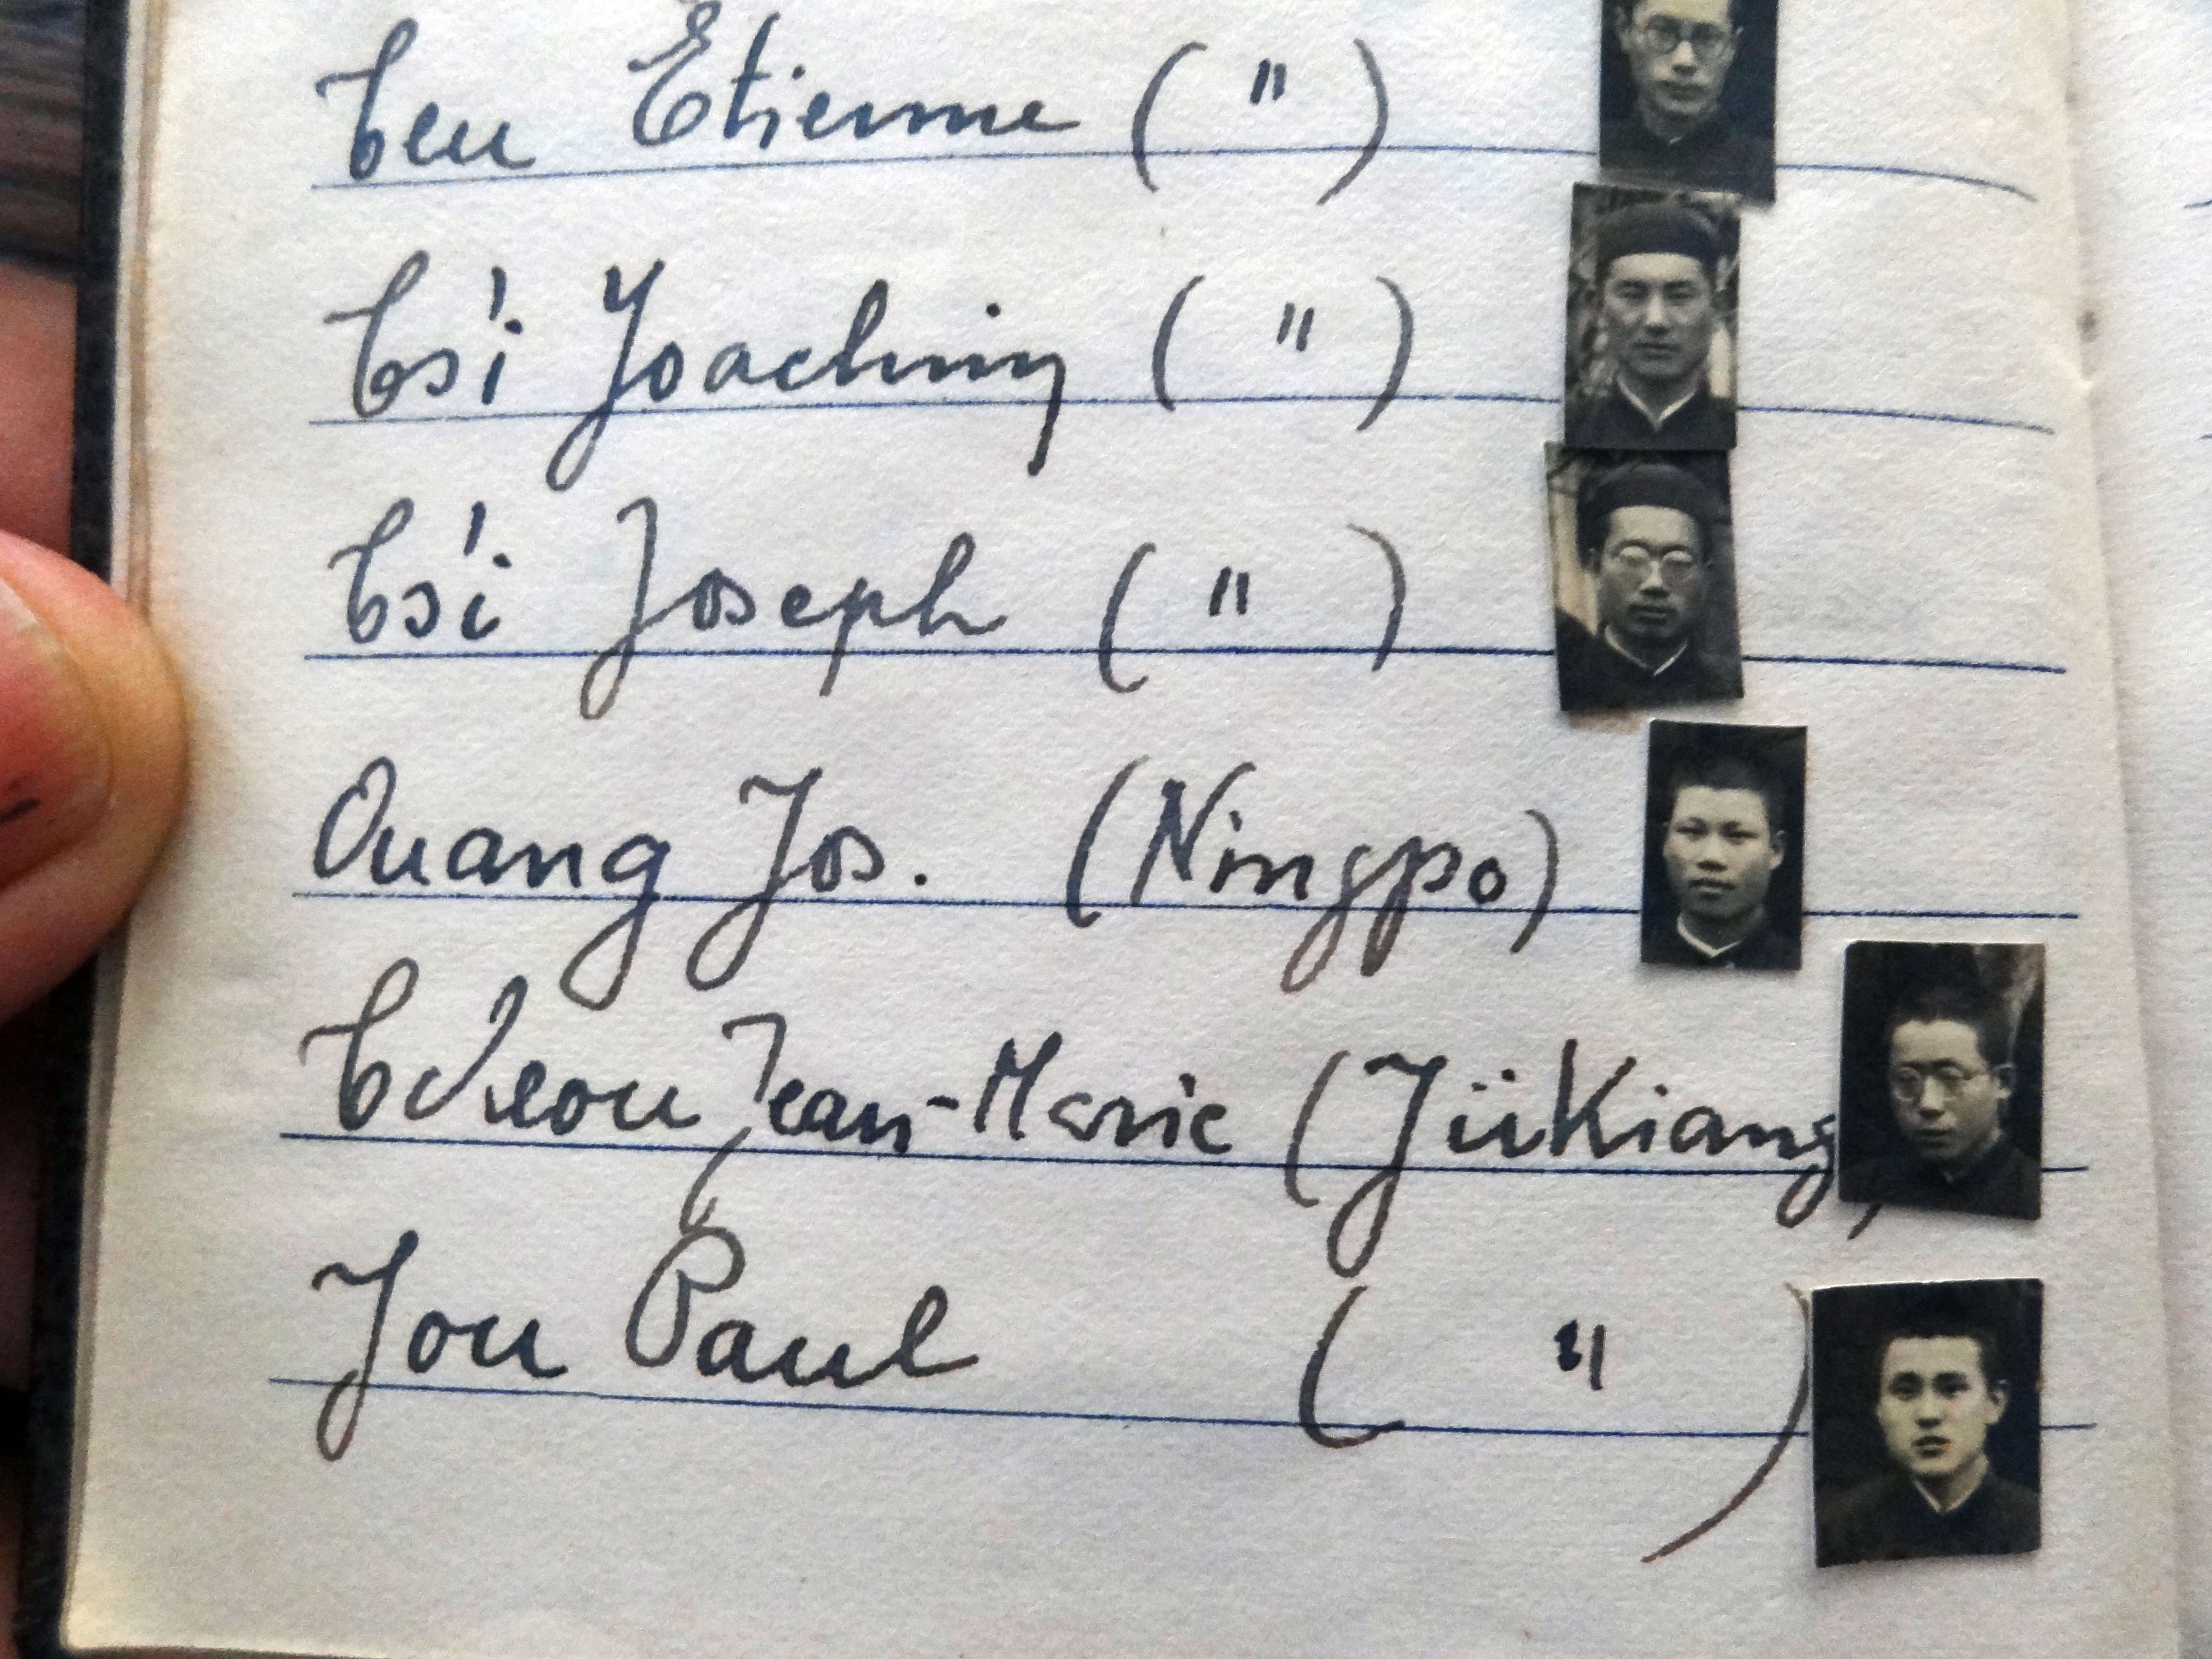 Tseu Etienne (")
Ts'i Joachim (")
Ts'i Joseph (")
Ouang Jos. (Ningpo)
Jean-Marie (Yükiang)
You Paul (")